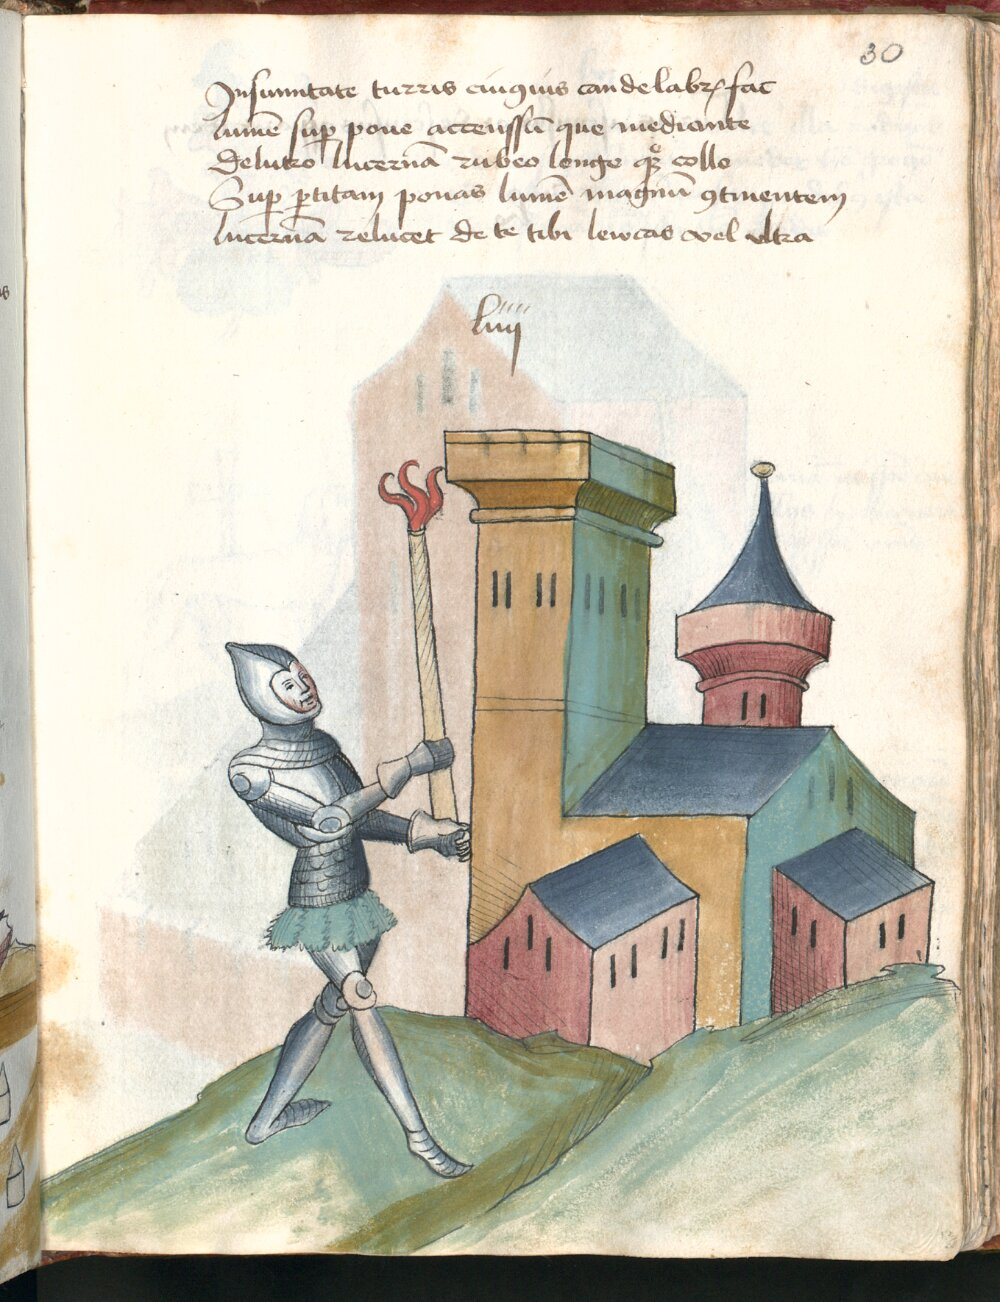 30
Insumitate turris cuiquis candelabrꝝ fac
lumē sup pone accenssā que mediante
De lutro lucernā rubeo longe qʒ collo
Sup ꝑtitam ponas lumē magnū ꝯtinentem
lucernā relucet de te tibi lewcas vel vltra
liiij